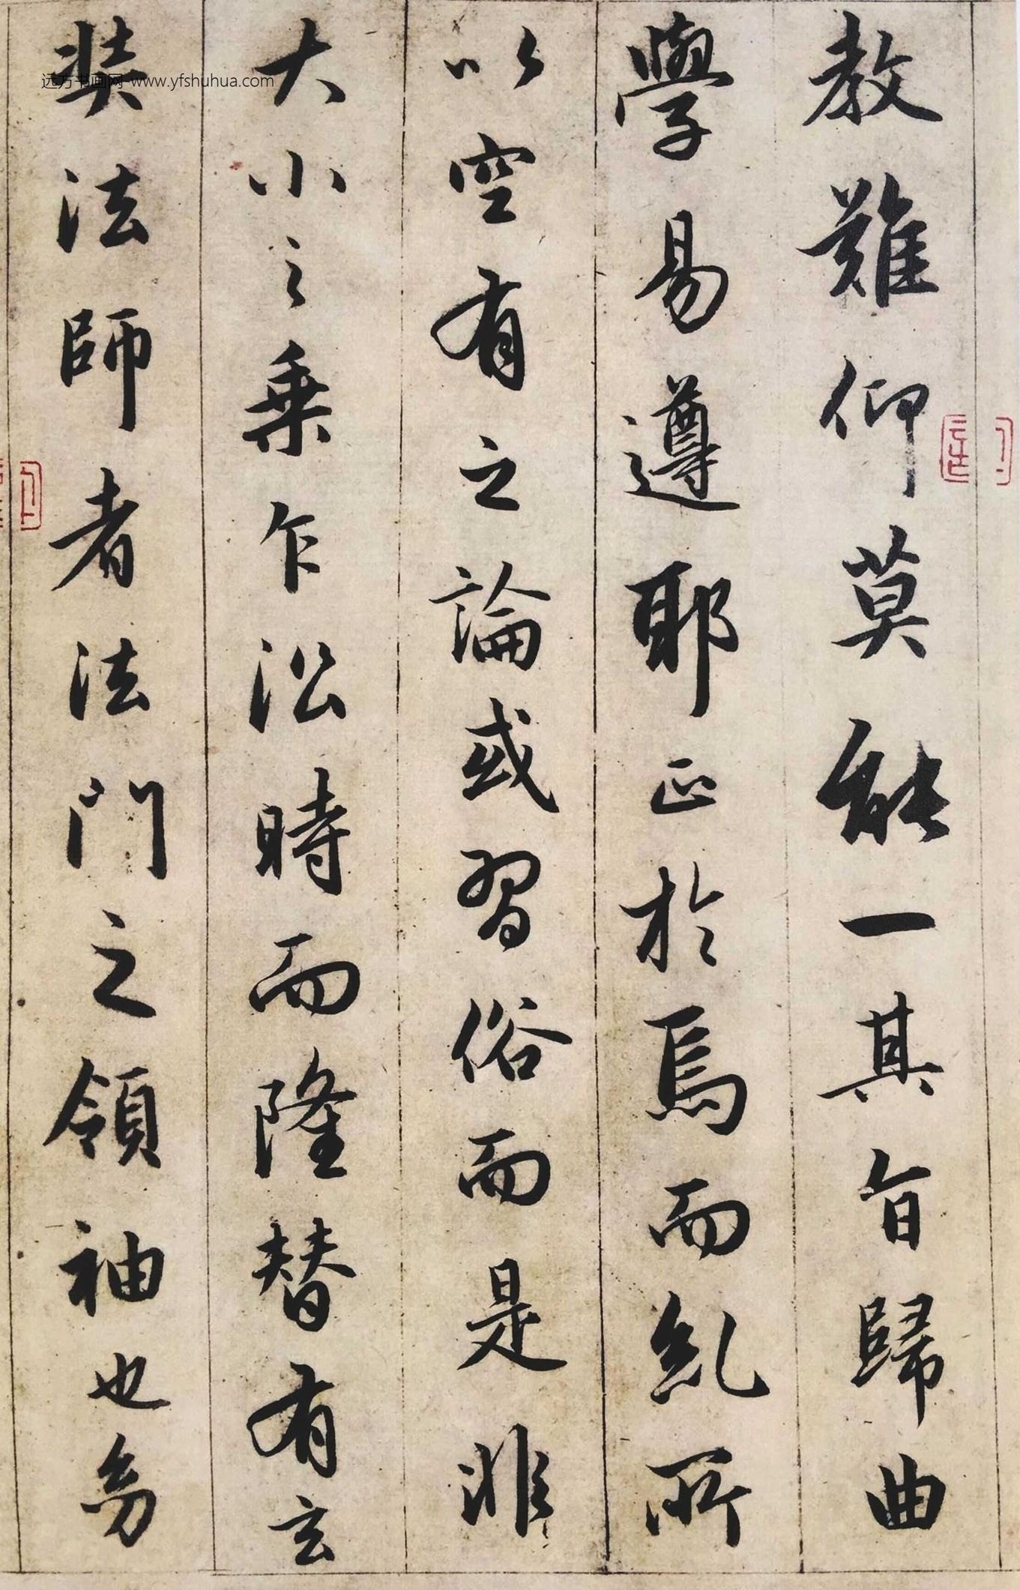 教難仰莫能一其旨歸曲
學易遵耶正於焉而糺所
以空有之論或習俗而是非
大小之乗乍沿時而隆替有玄
奘法師者法門之領袖也㓜
远方书画网-www.yfshuhua.com